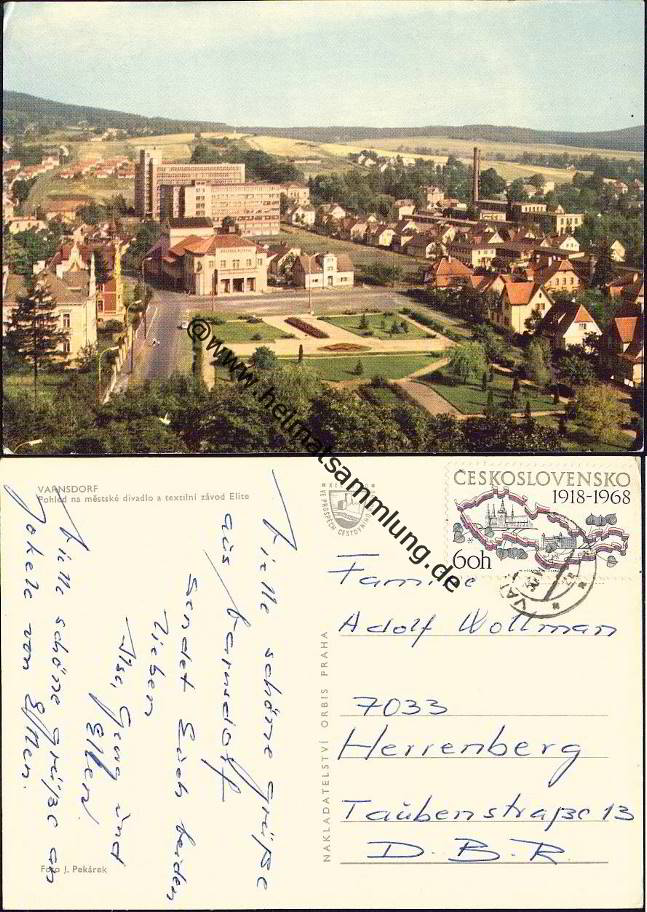 © www.heimatsammlung.de
VARNSDORF
Pohled na městské divadlo a textilní závod Elite
ČESKOSLOVENSKO
1918-1968
60h
VE PROSPĚCH CESTOVNÍHO
Viele schöne Grüße
aus Varnsdorf
sendet Euch beiden
Lieben
Ilse, Georg und
Ellen.
Viele schöne Grüße an
von Ellen.
Familie
Adolf Wollman
7033
Herrenberg
Taubenstraße 13
D. B. R.
NAKLADATELSTVÍ ORBIS PRAHA
Foto J. Pekárek